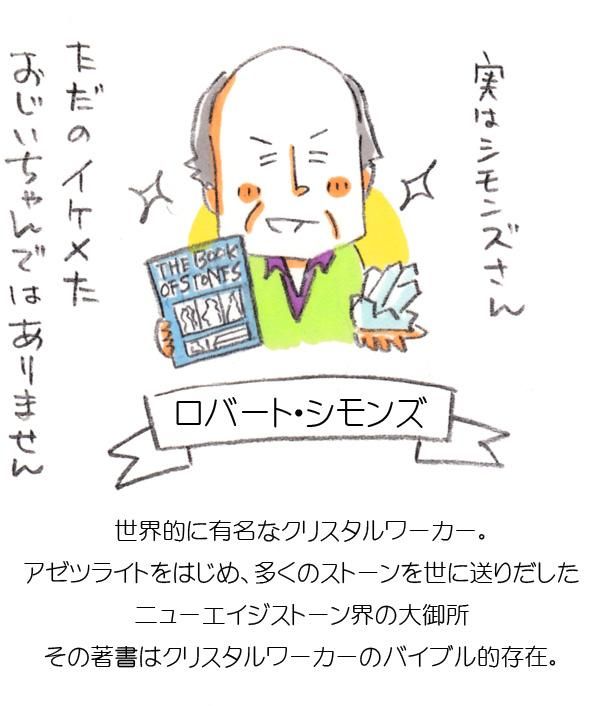 実はシモンズさん
ただのイケメた
おじいちゃんではありません
THE BOOK
OF STONES
ロバート・シモンズ
世界的に有名なクリスタルワーカー。
アゼツライトをはじめ、多くのストーンを世に送りだした
ニューエイジストーン界の大御所
その著書はクリスタルワーカーのバイブル的存在。